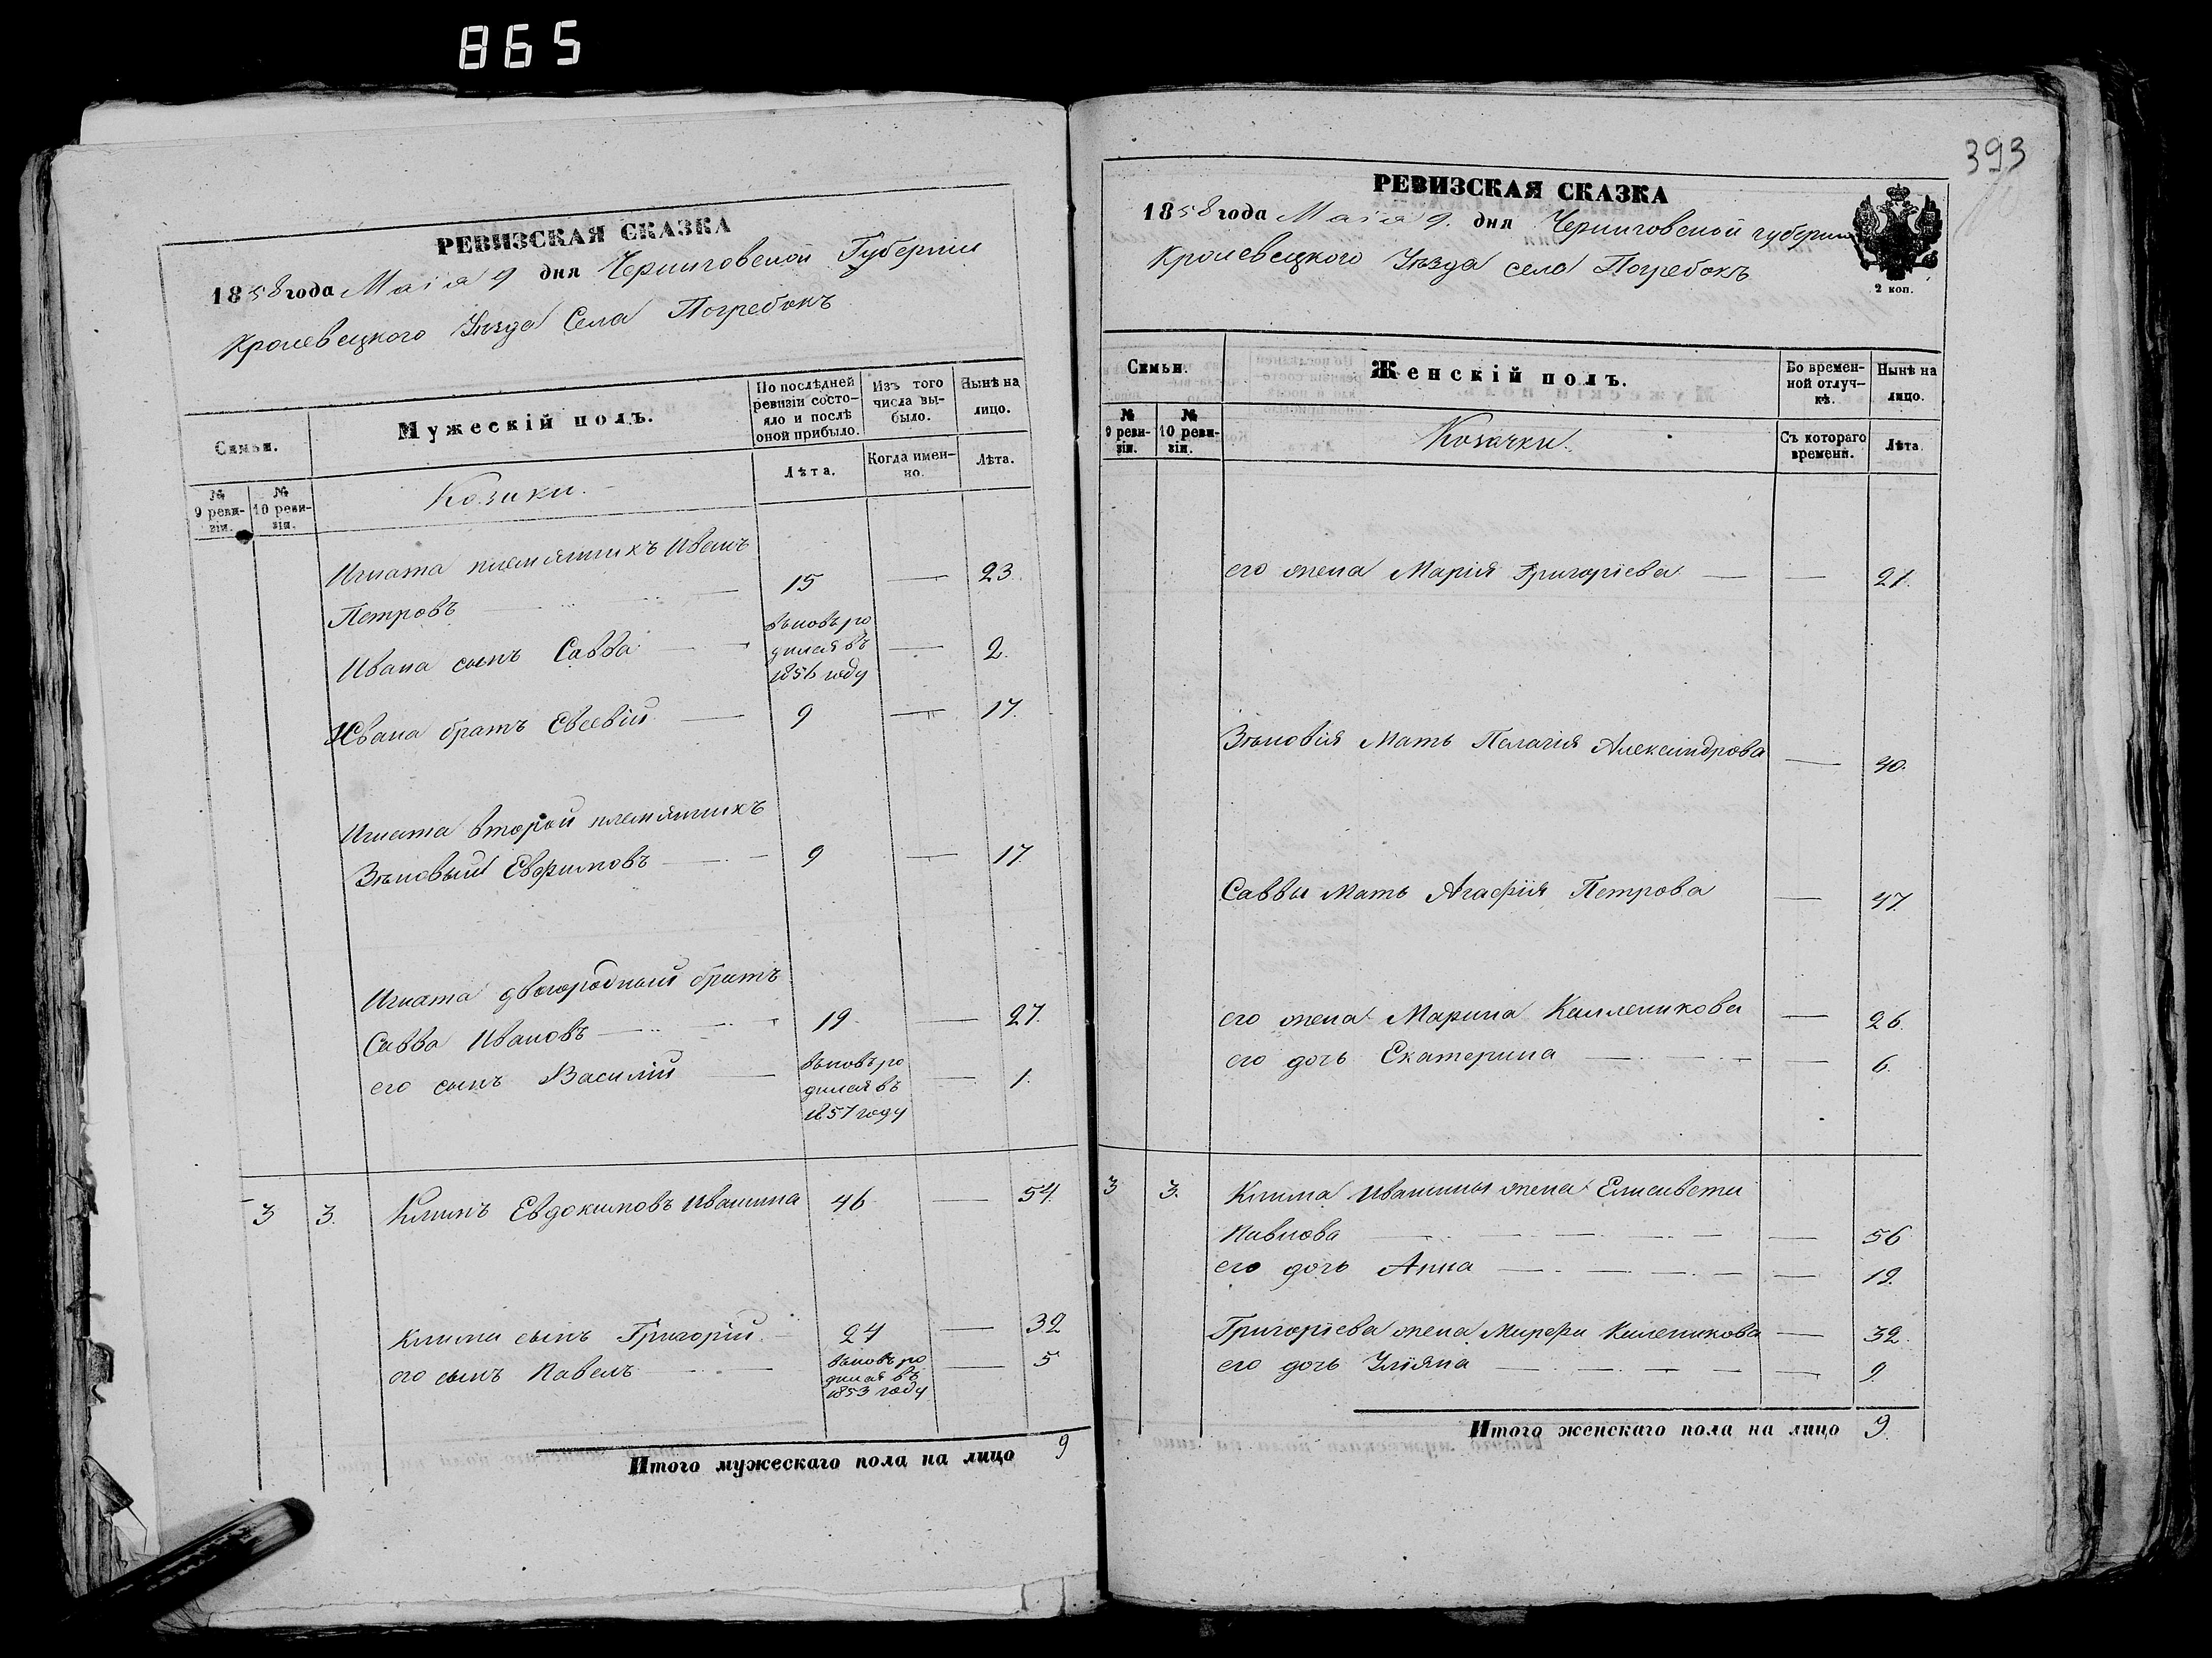 865
РЕВИЗСКАЯ СКАЗКА
1858 года Маія 9 дня Черниговской Губерніи
Кролевецкого Уѣзда Села Погребокъ
Семьи.
Мужескій полъ.
По послѣдней ревизіи состояло и послѣ оной прибыло.
Изъ того числа выбыло.
Нынѣ на лицо.
№ 9 ревизіи.
№ 10 ревизіи.
Козаки.
Лѣта.
Когда именно.
Лѣта.
Игната племянникъ Иванъ
Петровъ — 15 — 23.
Ивана сынъ Савва — вновь родился въ 1856 году — 2.
Ивана братъ Евсевій — 9 — 17.
Игната второй племянникъ
Зѣновый Евфимовъ — 9 — 17.
Игната двоюродный братъ
Савва Ивановъ — 19 — 27.
его сынъ Василій — вновь родился въ 1857 году — 1.
3 3. Климъ Евдокимовъ Ивашина 46 — 54.
Клима сынъ Григорій — 24 — 32
его сынъ Павелъ — вновь родился въ 1853 году — 5
Итого мужескаго пола на лицо 9
393
РЕВИЗСКАЯ СКАЗКА
1858 года Маія 9. дня Черниговской губерніи
Кролевецкого Уѣзда села Погребокъ
2 коп.
Семьи.
Женскій полъ.
Во временной отлучкѣ.
Нынѣ на лицо.
№ 9 ревизіи.
№ 10 ревизіи.
Козачки.
Съ котораго времени.
Лѣта.
его жена Марія Григоріева — — 21.
Зѣновія Мать Пелагія Александрова — 40.
Саввы Мать Агафія Петрова — 47.
его жена Марина — 26.
его дочь Екатерина — — 6.
3 3. Клима Ивашины жена Елисавета
Павлова — — 56
его дочь Анна — — 19.
Григоріева жена Марфа — 32.
его дочь Уліяна — — 9.
Итого женскаго пола на лицо 9.